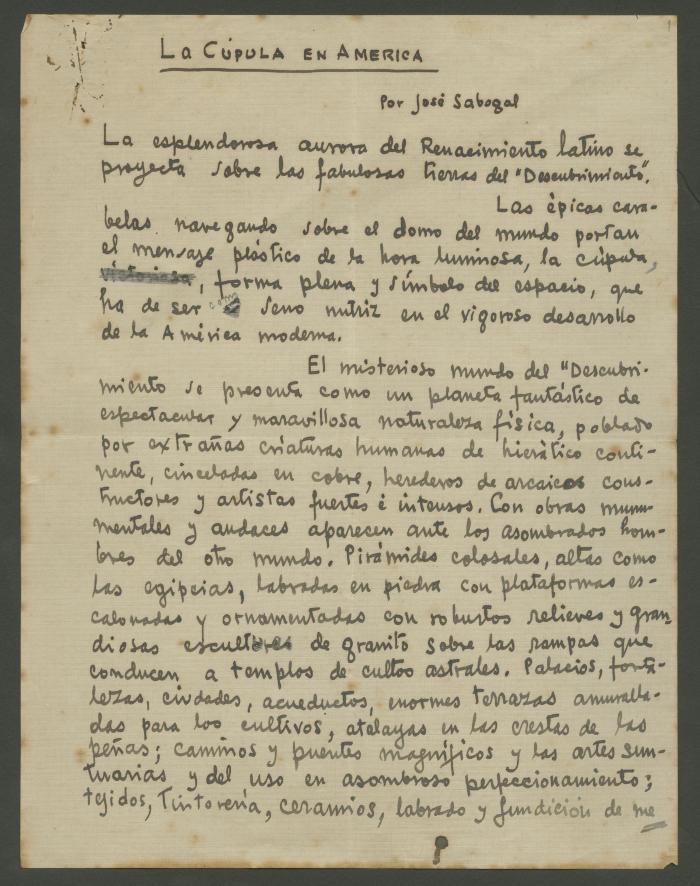 La CÚPULA EN AMERICA
Por José Sabogal
La esplendorosa aurora del Renacimiento latino se
proyecta sobre las fabulosas tierras del "Descubrimiento".
Las épicas cara-
belas navegando sobre el domo del mundo portan
el mensaje plástico de la hora luminosa, la cúpula,
victoriosa, forma plena y símbolo del espacio, que
ha de ser como seno nutriz en el vigoroso desarrollo
de la América moderna.
El misterioso mundo del "Descubri-
miento se presenta como un planeta fantástico de
espectacular y maravillosa naturaleza física, poblado
por extrañas criaturas humanas de hierático conti-
nente, cinceladas en cobre, herederos de arcaicos cons-
tructores y artistas fuertes é intensos. Con obras monu-
mentales y audaces aparecen ante los asombrados hom-
bres del otro mundo. Pirámides colosales, altas como
las egipcias, labradas en piedra con plataformas es-
calonadas y ornamentadas con robustos relieves y gran-
diosas esculturas de granito sobre las rampas que
conducen a templos de cultos astrales. Palacios, forta-
lezas, ciudades, acueductos, enormes terrazas amuralla-
das para los cultivos, atalayas en las crestas de las
peñas; caminos y puentes magníficos y las artes sun-
tuarias y del uso en asombroso perfeccionamiento;
tejidos, tintorería, ceramios, labrado y fundición de me